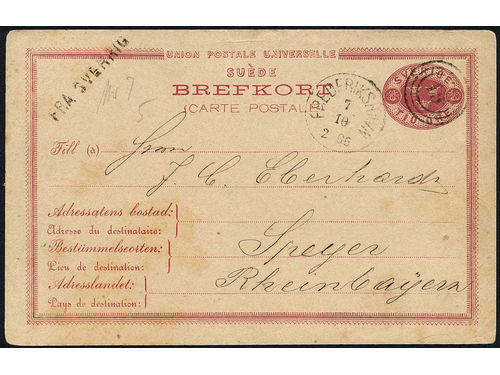 FRA SVERRIG
UNION POSTALE UNIVERSELLE
SUÈDE
BREFKORT
(CARTE POSTALE)
FREDERIKSHAVN
7
10
2
SVERIGE
TIO ÖRE
Till (a) Herrn
J. C. Eberhardt
Adressatens bostad:
Adresse du destinataire:
Bestämmelseorten: Speyer
Lieu de destination:
Adresslandet: Rheinbayern
Pays de destination: